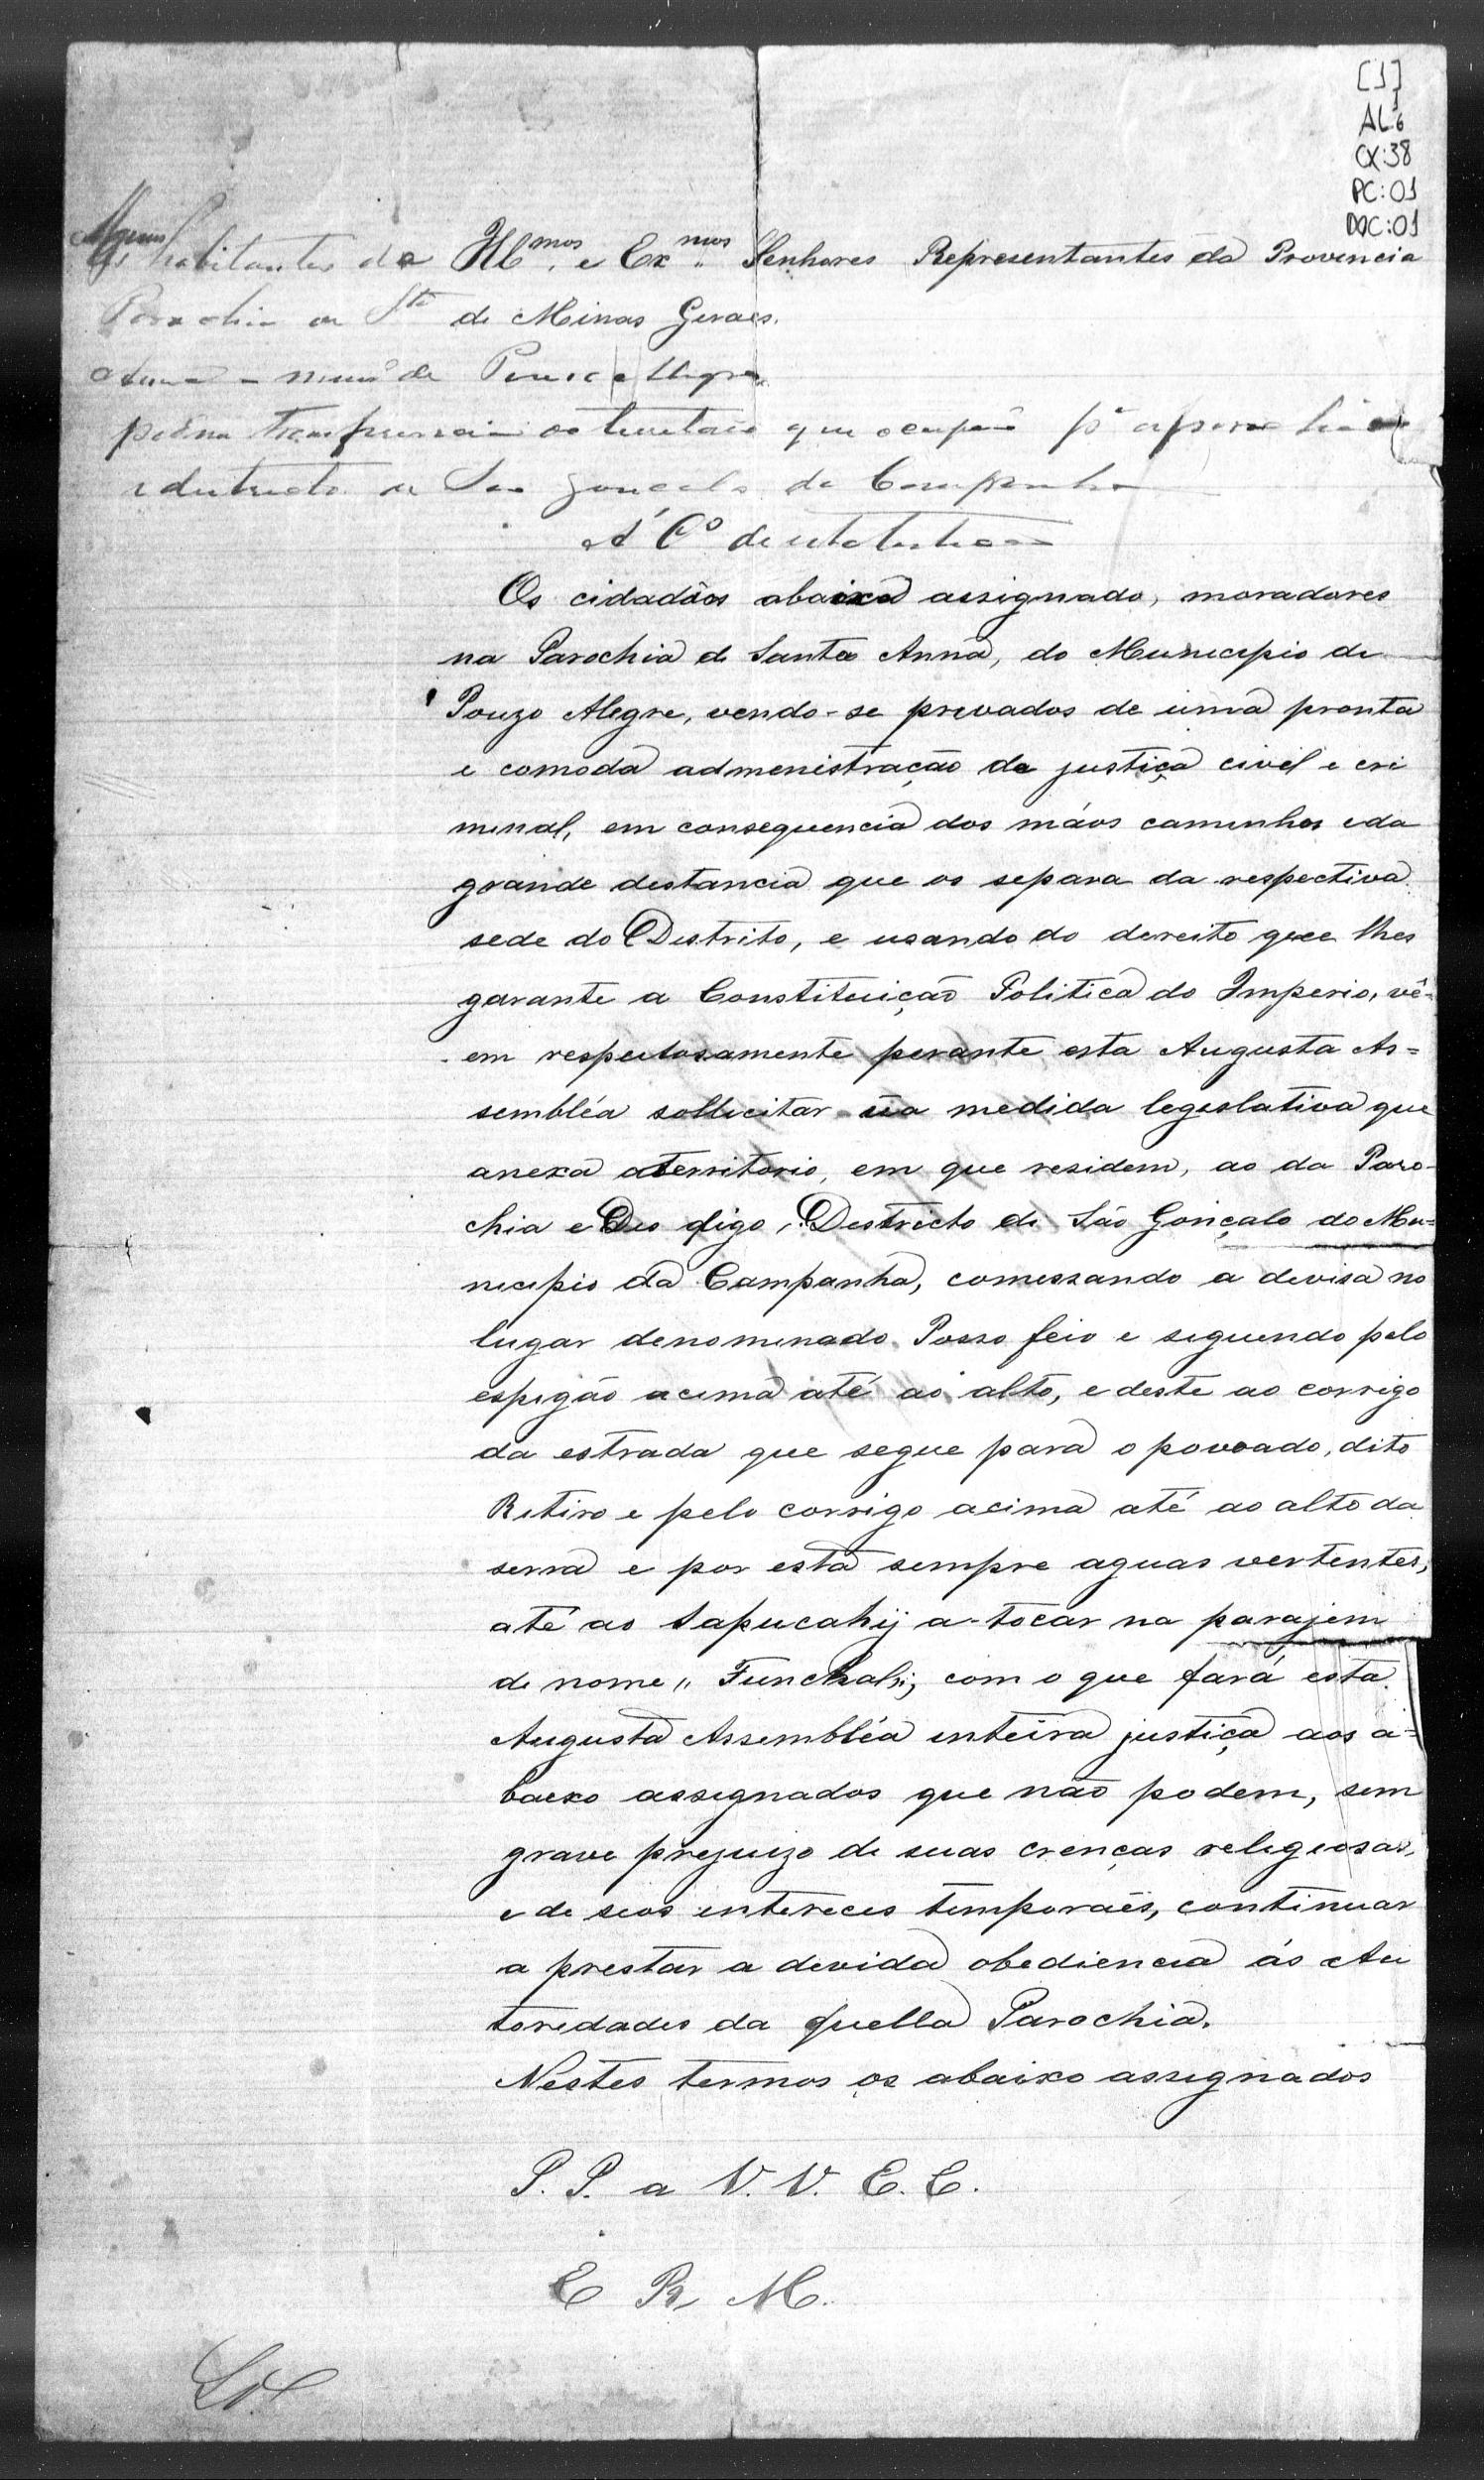 [1]
AL:6
CX:38
PC:01
DOC:01
Ill.mos e Ex.mos Senhores Representantes da Provincia
de Minas Geraes.
Alguns habitantes da
Parochia de Sta
Anna - mun.º de Pouso Alegre
pedem transferencia do que occupão pª a parochia
e districto de São Gonçalo da Campanha
Á C.º de estatistica
Os cidadãos abaixo assignado, moradores
na Parochia de Santa Anna, do Municipio de
Pouzo Alegre, vendo-se privados de uma pronta
e comoda admenistração de justiça civel e cri
minal, em consequencia dos máos caminhos e da
grande destancia que os separa da respectiva
sede do Destrito, e usando do dereito que lhes
garante a Constituição Politica do Imperio, vê-
em respeitosamente perante esta Augusta As=
sembléa sollicitar ũa medida legeslativa que
anexa o territorio, em que residem, ao da Paro-
chia e Des digo, Destricto de São Gonçalo do Mu=
necipio da Campanha, comessando a devisa no
lugar denomenado Posso feio e seguendo pelo
espigão acima até ao alto, e deste ao corrigo
da estrada que segue para o povoado, dito
Retiro e pelo corrigo acima até ao alto da
serra e por esta sempre aguas vertentes,
até ao Sapucahij a-tocar na parajem
de nome „ Funchal„; com o que fará esta
Augusta Assembléa enteira justiça aos a=
baixo assegnados que não podem, sem
grave prejuizo de suas crenças religiosas,
e de seos entereces temporaes, continuar
a prestar a devida obediencia ás Au
toredades da quella Parochia.
Nestes termos os abaixo assegnados
P. P. a V. V. E. E.
E R M.